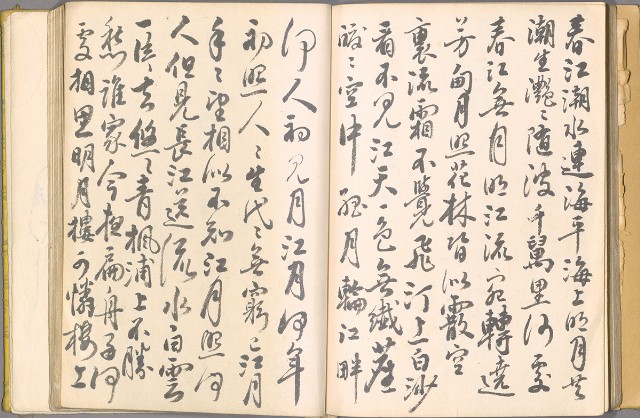 春江潮水連海平海上明月共
潮生灔〻随波千萬里何處
春江無月明江流宛轉遶
芳甸月照花林皆似霰空
裏流霜不覺飛汀上白沙
看不見江天一色無纖塵
皎〻空中孤月輪江畔
何人初見月江月何年
初照人〻生代〻無窮已江月
年〻望相似不知江月照何
人但見長江送流水白雲
一片去悠〻青楓浦上不勝
愁誰家今夜扁舟子何
處相思明月樓可憐樓上